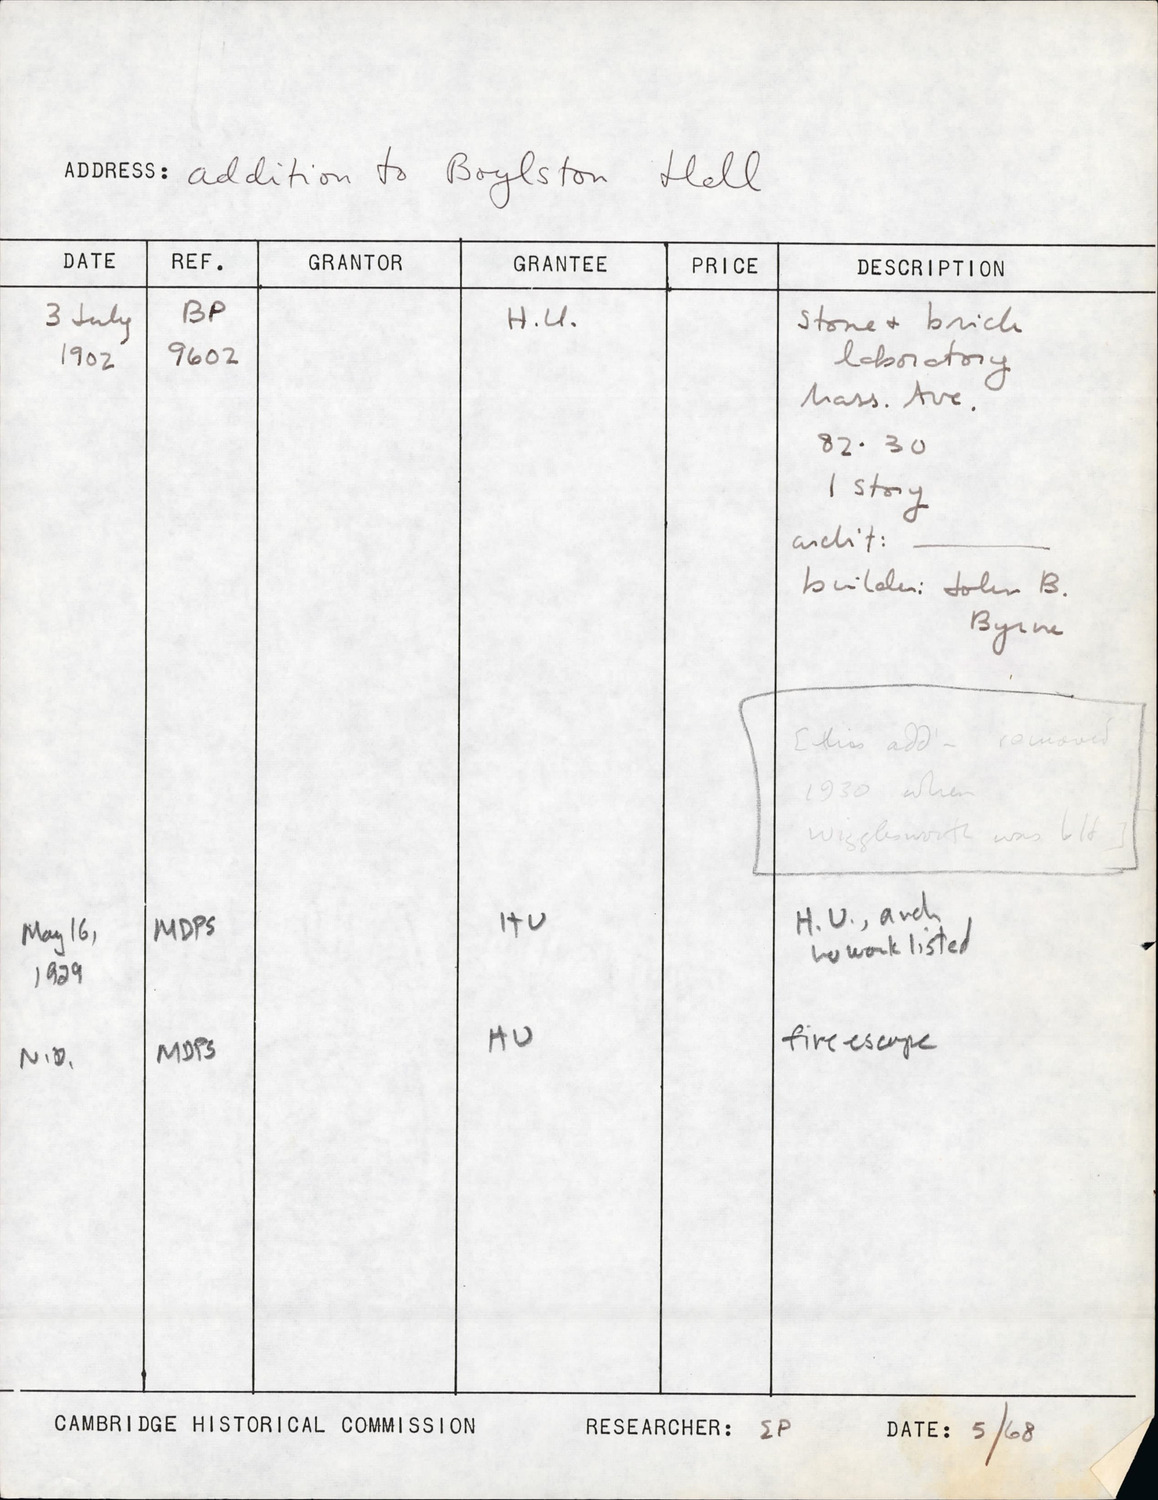 ADDRESS: addition to Boylston Hall
DATE REF. GRANTOR GRANTEE PRICE DESCRIPTION
3 July BP H.U. stone + brick
1902 9602 laboratory
Mass. Ave.
82 · 30
1 story
archit: ————
builder: John B.
Byrne
[this add'n removed
1930 when
Wigglesworth was blt]
May 16, MDPS HU H.U., arch
1929 no work listed
N.D. MDPS HU fire escape
CAMBRIDGE HISTORICAL COMMISSION RESEARCHER: ΣP DATE: 5/68